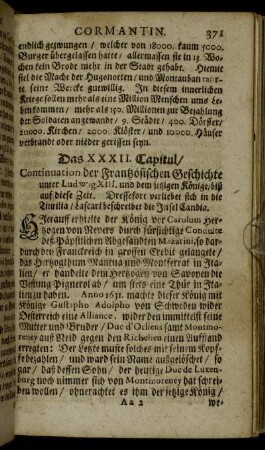 CORMANTIN. 371
endlich gezwungen / welcher von 18000. kaum 5000.
Burger übergelassen hatte / allermassen sie in 13. Wo-
chen kein Brode mehr in der Stadt gehabt. Hiemit
fiel die Macht der Hugonotten / und Montauban
te seine Wercke gutwillig. In diesem innerlichen
Kriege sollen mehr als eine Million Menschen ums Le-
ben kommen / mehr als 150. Millionen zur Bezahlung
der Soldaten angewande / 9. Städte / 400. Dörffer /
20000. Kirchen / 2000. Klöster / und 10000. Häuser
verbrandt oder nieder gerissen seyn.
Das XXXII. Capitul /
Continuation der Frantzösischen Geschichte
unter Ludwig XIII. und dem jetzigen Könige, biß
auf diese Zeit. Dersselbe verliebet sich in die
Zinella / Lascari beschreibet die Insel Candia.
Hierauff erhielte der König vor Carolum Her-
zogen von Nevers durch fürsichtige Conduite
deß Päpstlichen Abgesandten Mazarini, so dar-
durch den Franckreich in grossen Credit gelangete /
das Herzogthum Mantua und Montferrat in Ita-
lien / er handelte dem Herzogen von Savoyen die
Vestung Pignerol ab / um stets eine Thür in Ita-
lien zu haben. Anno 1631. machte dieser König mit
Könige Gustapho Adolpho von Schweden wider
Oesterreich eine Alliance, wider den immittelst seine
Mutter und Bruder / Duc d'Orliens samt Montmo-
rency auß Neid gegen den Richelieu einen Auffstand
erregten: Der Letzte muste solches mit seinem Kopf-
fe bezahlen / und ward sein Name außgelöschet / so
gar / daß dessen Sohn / der heutige Duc de Luxem-
burg noch nimmer sich von Montmorency hat schrei-
ben wollen / ohnerachtet es ihm der jetzige König /
Aa 2 we-